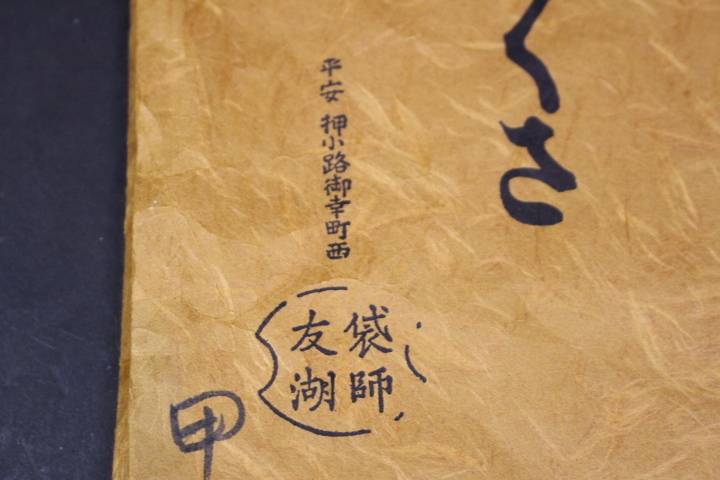 くさ
平安 押小路御幸町西
袋師
友湖
甲